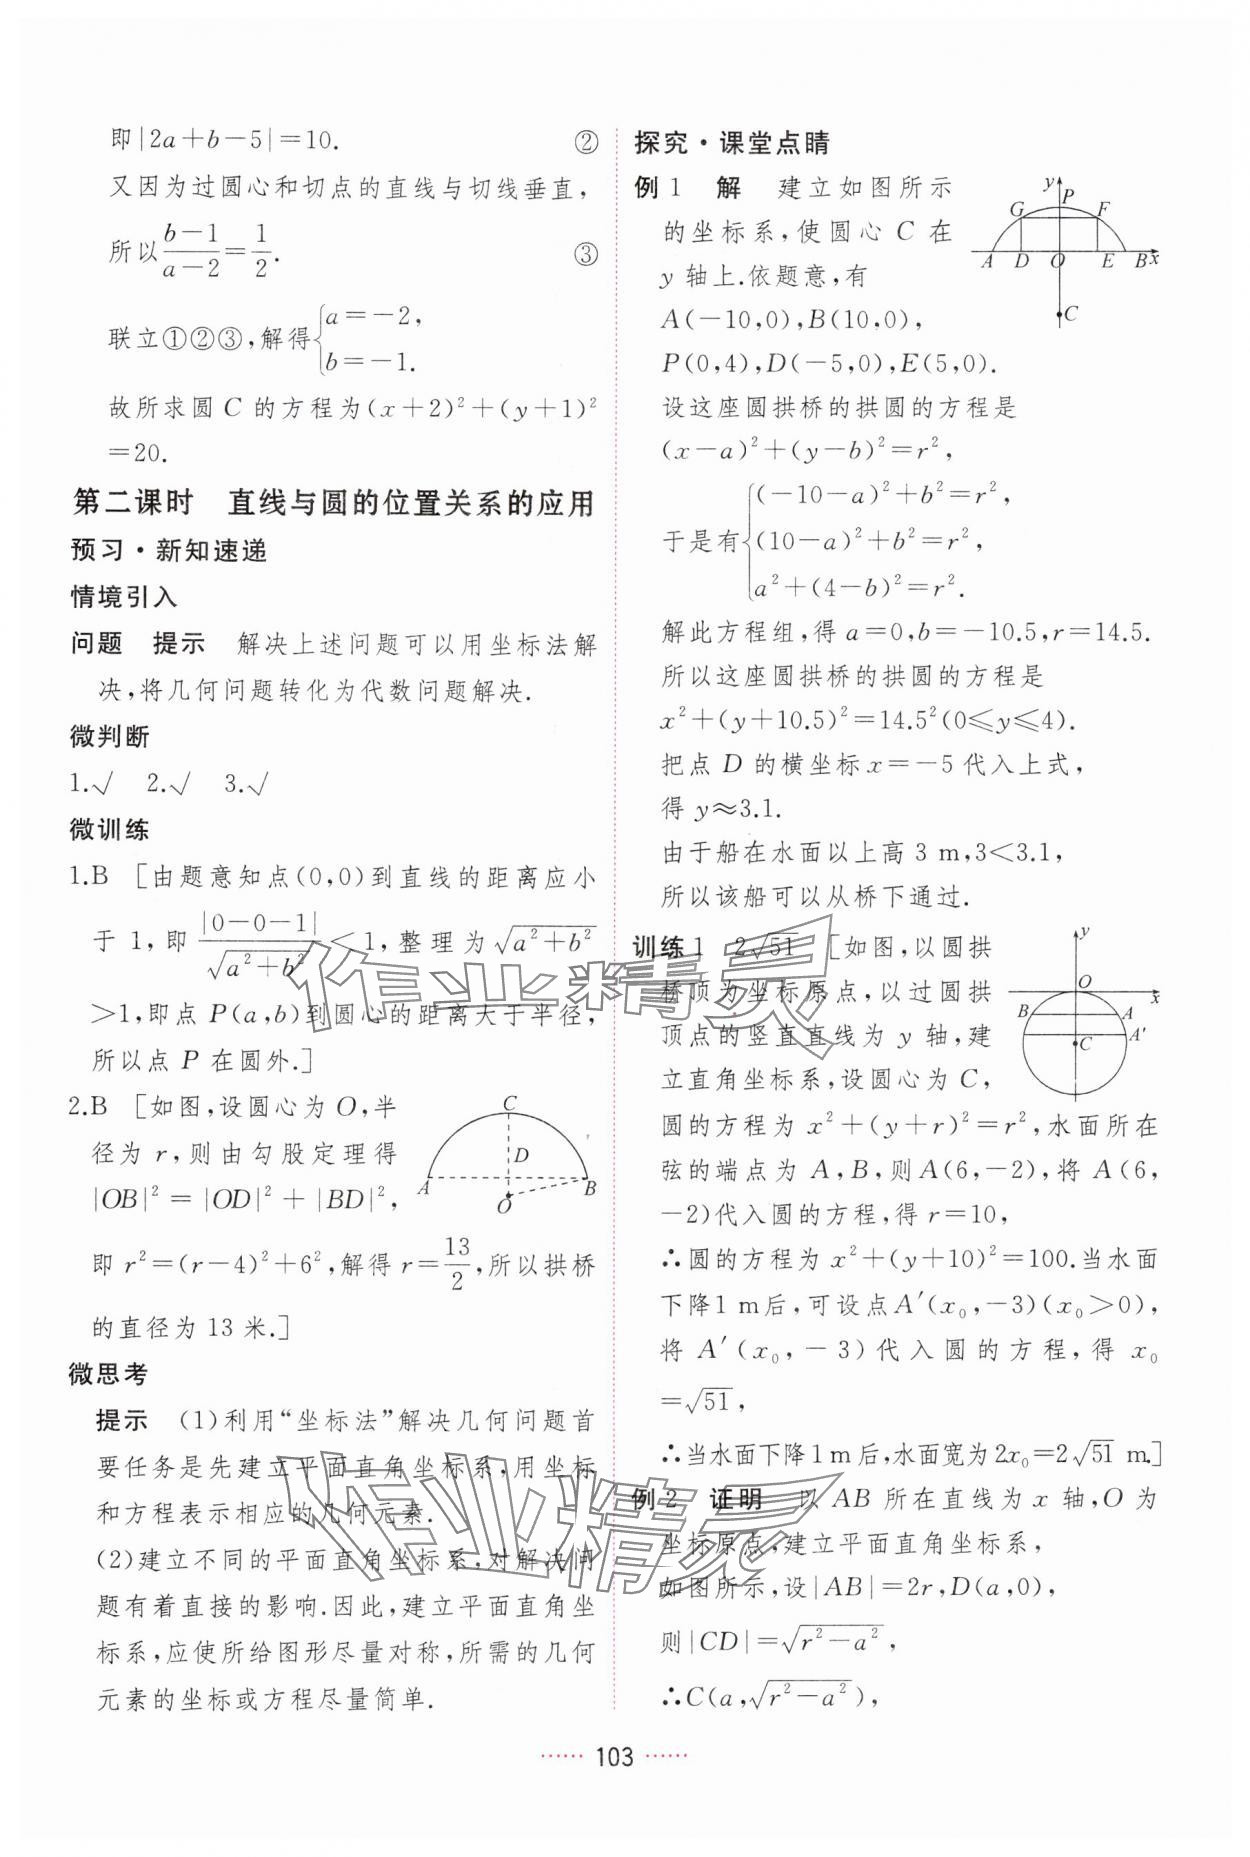 即|2a+b-5|=10. ②
又因为过圆心和切点的直线与切线垂直,
所以\frac{b-1}{a-2}=\frac{1}{2}. ③
联立①②③,解得{a=-2, b=-1.
故所求圆 C 的方程为(x+2)²+(y+1)²
=20.
第二课时 直线与圆的位置关系的应用
预习·新知速递
情境引入
问题 提示 解决上述问题可以用坐标法解
决,将几何问题转化为代数问题解决.
微判断
1.√ 2.√ 3.√
微训练
1.B [由题意知点(0,0)到直线的距离应小
于 1,即\frac{|0-0-1|}{\sqrt{a²+b²}}<1,整理为\sqrt{a²+b²}
>1,即点 P(a,b)到圆心的距离大于半径,
所以点 P 在圆外.]
2.B [如图,设圆心为 O,半
径为 r,则由勾股定理得
|OB|²=|OD|²+|BD|²,
即 r²=(r-4)²+6²,解得 r=\frac{13}{2},所以拱桥
的直径为 13 米.]
C
D
A
B
O
微思考
提示 (1)利用“坐标法”解决几何问题首
要任务是先建立平面直角坐标系,用坐标
和方程表示相应的几何元素.
(2)建立不同的平面直角坐标系,对解决问
题有着直接的影响.因此,建立平面直角坐
标系,应使所给图形尽量对称,所需的几何
元素的坐标或方程尽量简单.
探究·课堂点睛
例 1 解 建立如图所示
的坐标系,使圆心 C 在
y 轴上.依题意,有
A(-10,0),B(10,0),
P(0,4),D(-5,0),E(5,0).
y P
G F
A D O E B x
C
设这座圆拱桥的拱圆的方程是
(x-a)²+(y-b)²=r²,
于是有{(-10-a)²+b²=r²,
(10-a)²+b²=r²,
a²+(4-b)²=r².
解此方程组,得 a=0,b=-10.5,r=14.5.
所以这座圆拱桥的拱圆的方程是
x²+(y+10.5)²=14.5²(0≤y≤4).
把点 D 的横坐标 x=-5 代入上式,
得 y≈3.1.
由于船在水面以上高 3 m,3<3.1,
所以该船可以从桥下通过.
训练 1 2\sqrt{51} [如图,以圆拱
桥顶为坐标原点,以过圆拱
顶点的竖直直线为 y 轴,建
立直角坐标系,设圆心为 C,
y
O
x
B A
A′
C
圆的方程为 x²+(y+r)²=r²,水面所在
弦的端点为 A,B,则A(6,-2),将 A(6,
-2)代入圆的方程,得 r=10,
∴圆的方程为 x²+(y+10)²=100.当水面
下降1 m后,可设点A′(x₀,-3)(x₀>0),
将 A′(x₀,-3)代入圆的方程,得 x₀
=\sqrt{51},
∴当水面下降1 m后,水面宽为2x₀=2\sqrt{51} m.]
例 2 证明 以 AB 所在直线为 x 轴,O 为
坐标原点,建立平面直角坐标系,
如图所示,设|AB|=2r,D(a,0),
则|CD|=\sqrt{r²-a²},
∴C(a,\sqrt{r²-a²}),
作业精灵
作业精灵
······ 103 ······